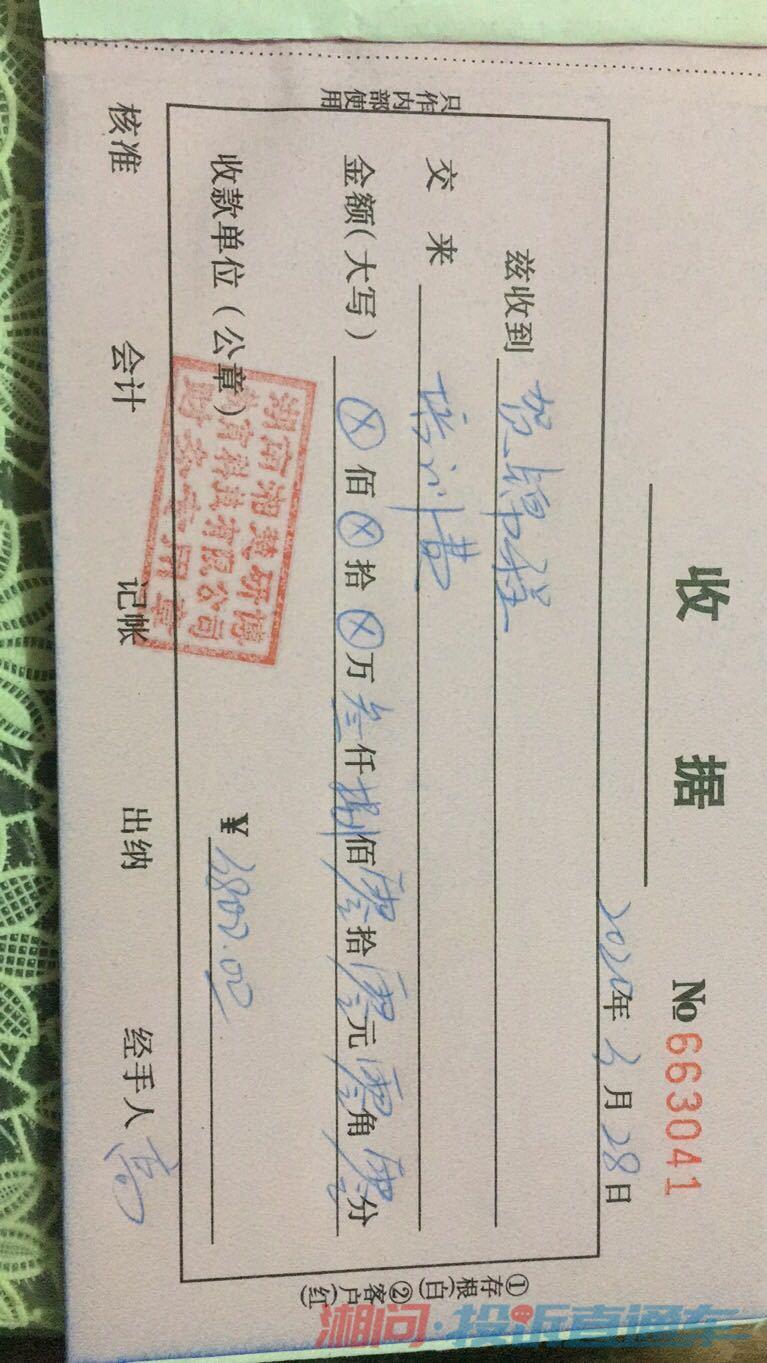 收据
№ 663041
2020年3月28日
只作内部使用
兹收到 贺锦程
交来 培训费
金额(大写) ⊗佰⊗拾⊗万叁仟捌佰零拾零元零角零分
收款单位(公章) ¥ 3800.00
湖南湘楚研博
教育科技有限公司
财务专用章
核准 会计 记帐 出纳 经手人 高
①存根(白)②客户(红)
湘问·投诉直通车